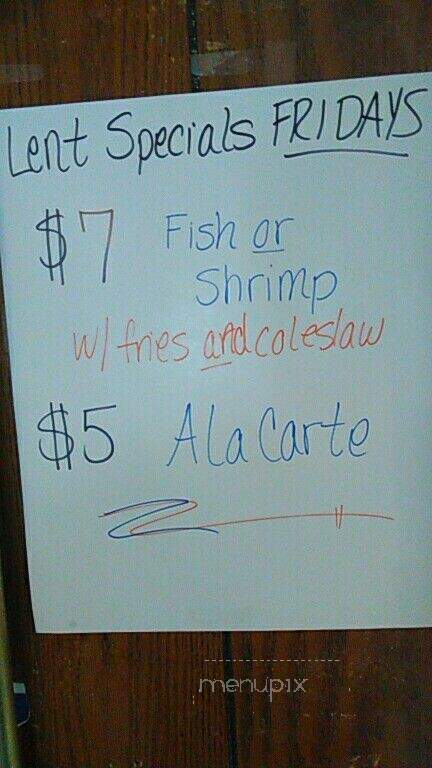 Lent Specials FRIDAYS
$7 Fish or
Shrimp
w/ fries and coleslaw
$5 A la Carte
menupix